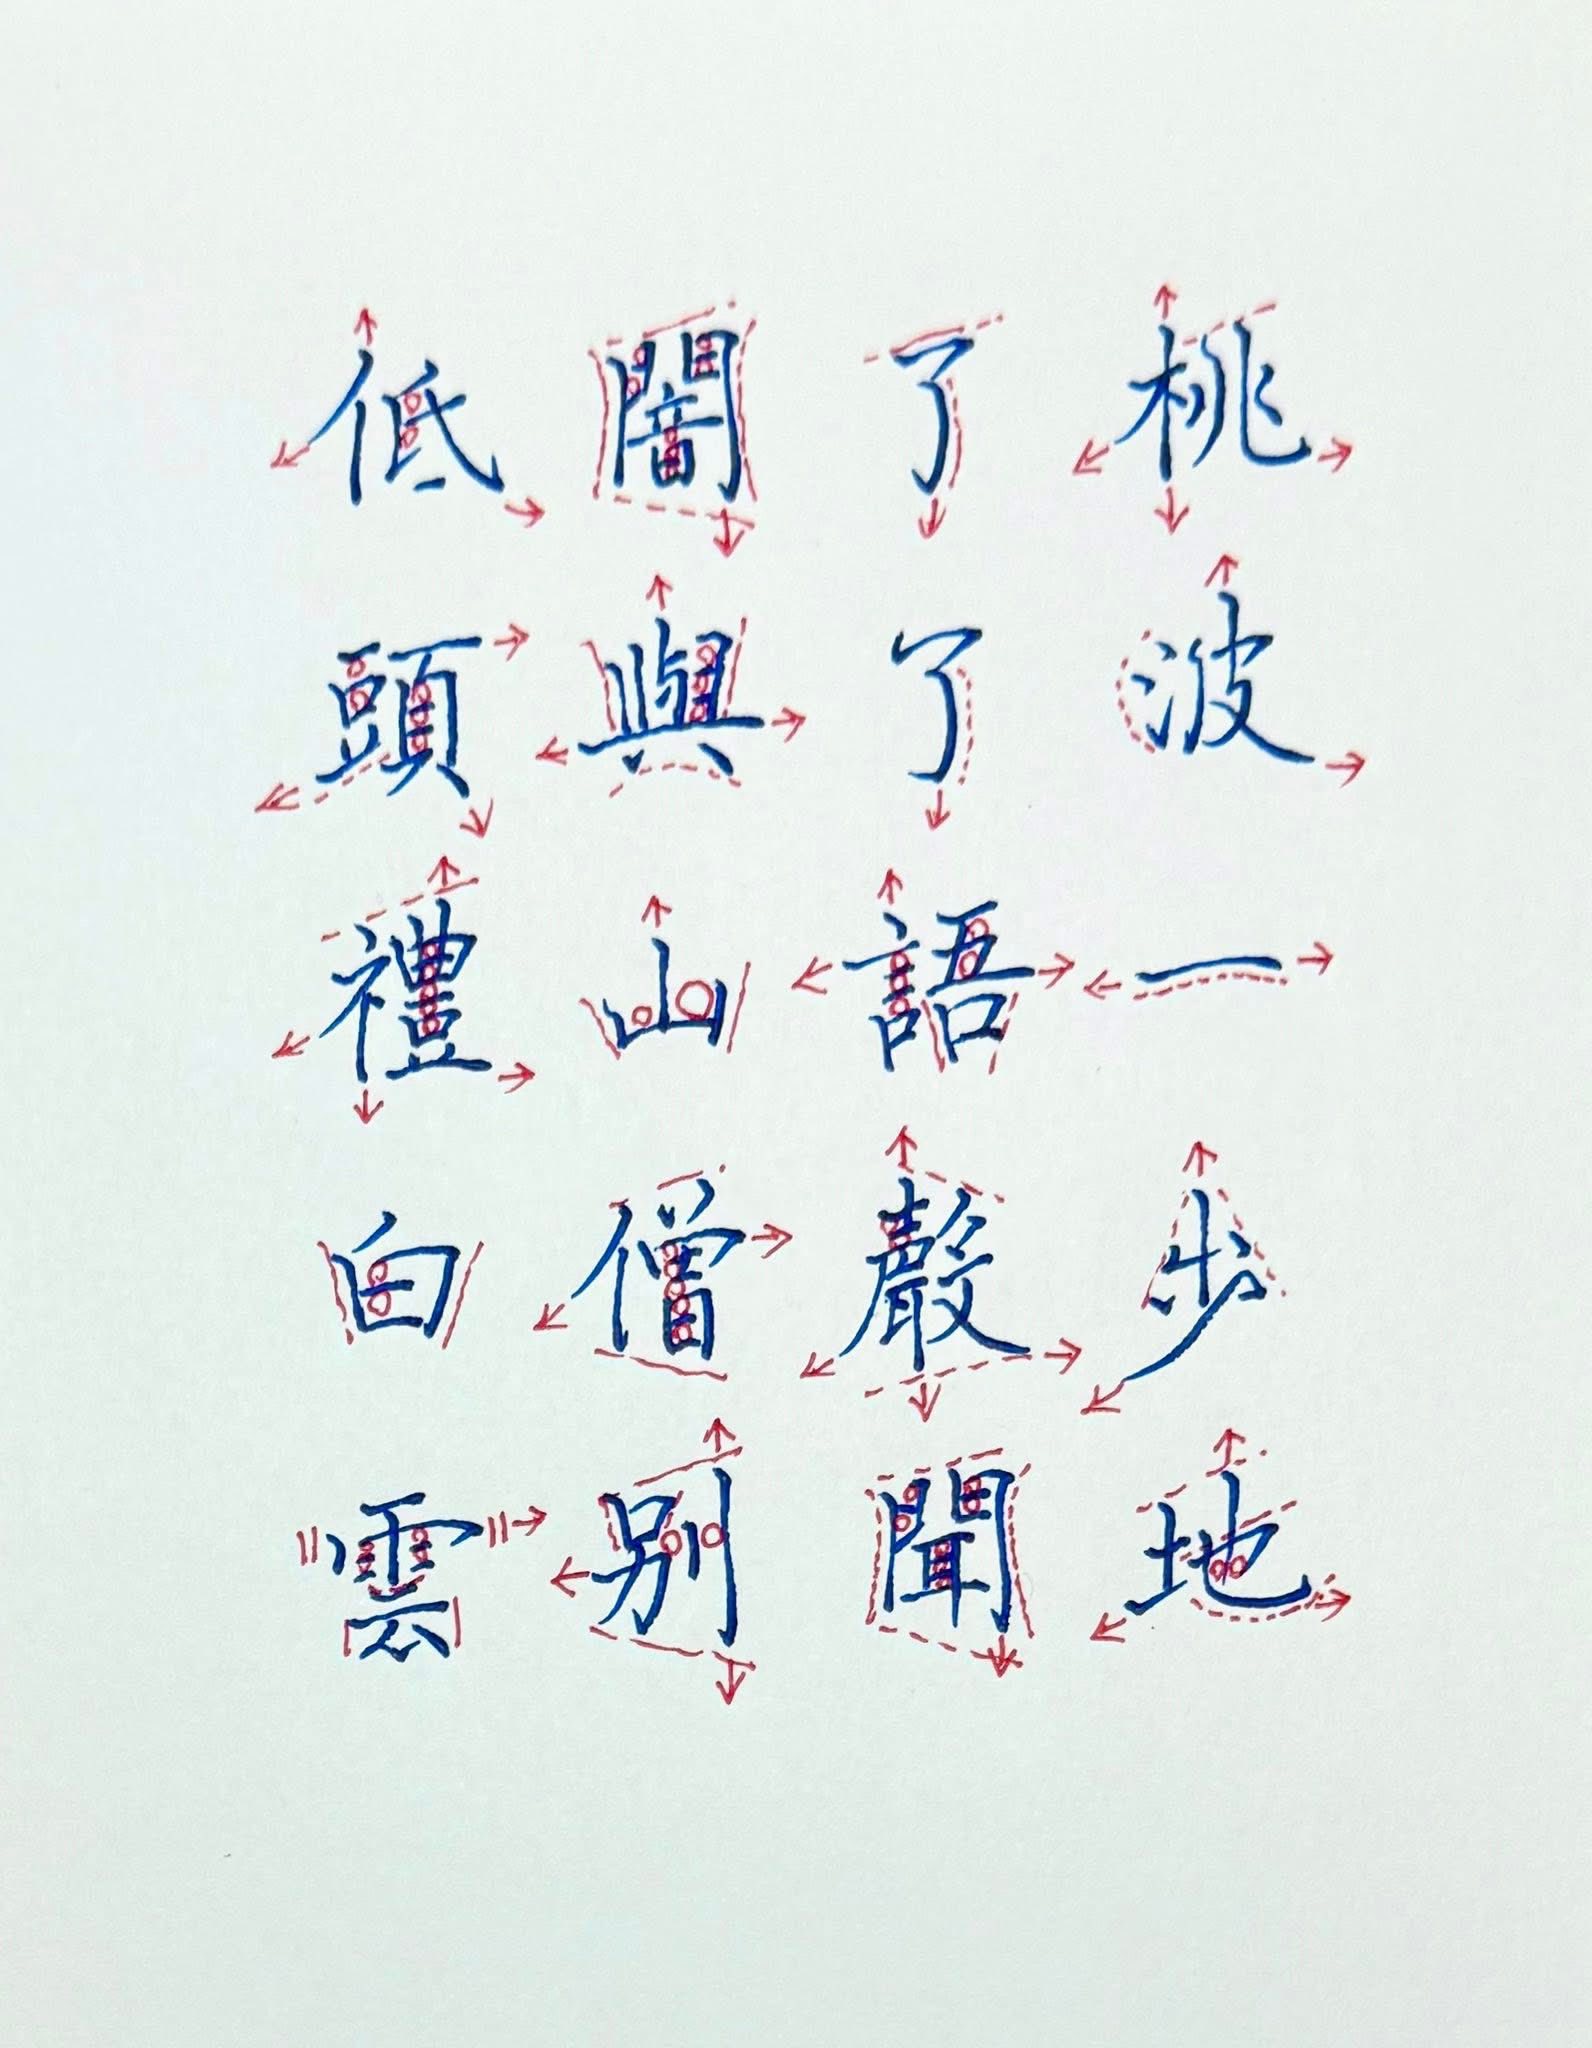 桃波一步地
了了語聲聞
闇與山僧別
低頭禮白雲